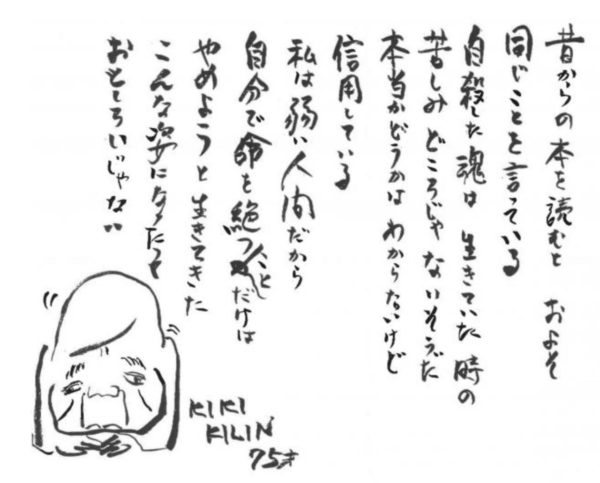 昔からの本を読むと およそ
同じことを言っている
自殺した魂は 生きていた時の
苦しみ どころじゃ ないそうだ
本当かどうかは わからないけど
信用している
私は弱い人間だから
自分で命を絶つことだけは
やめようと 生きてきた
こんな姿になったって
おもしろいじゃない
KIKI
KILIN
75才